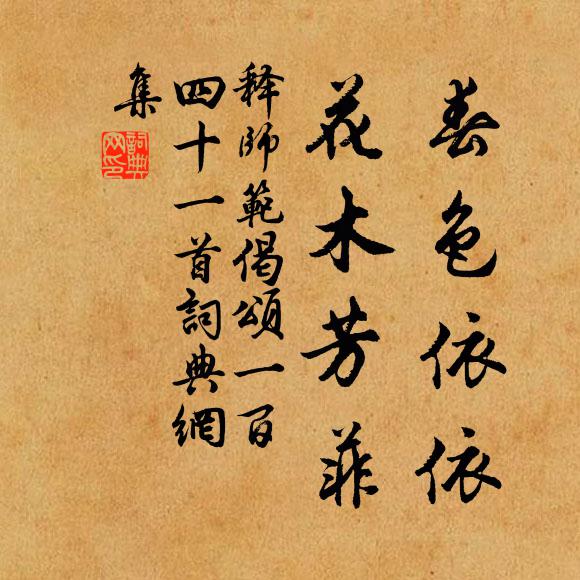 春色依依
花木芳菲
释師範偈頌一百
四十一首詞典網
集
詞典网印